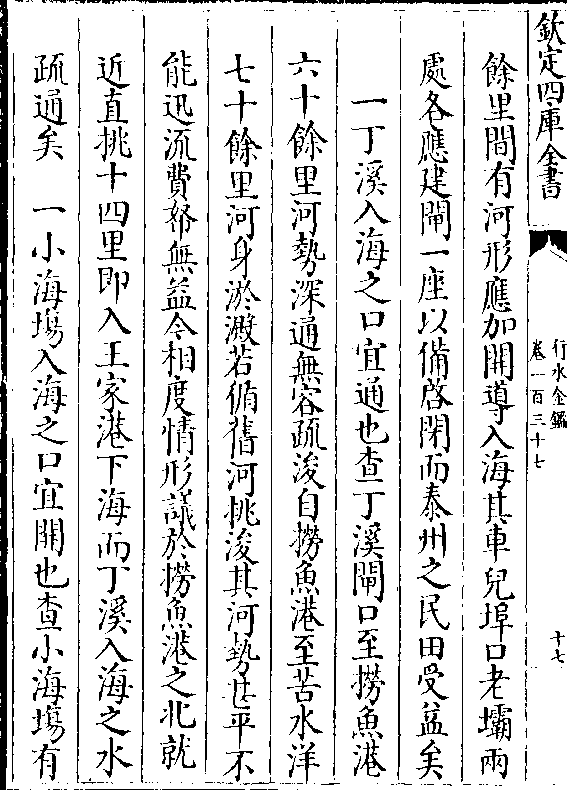 欽定四庫全書
行水金鑑
卷一百三十七
十七
餘里間有河形應加開導入海其車兒埠口老壩兩
處各應建閘一座以備啓閉而泰州之民田受益矣
一丁溪入海之口宜通也查丁溪閘口至撈魚港
六十餘里河勢深通無容疏浚自撈魚港至苦水洋
七十餘里河身淤澱若循舊河挑浚其河勢甚平不
能迅流費帑無益今相度情形議於撈魚港之北就
近直挑十四里即入王家港下海而丁溪入海之水
疏通矣　一小海場入海之口宜開也查小海場有